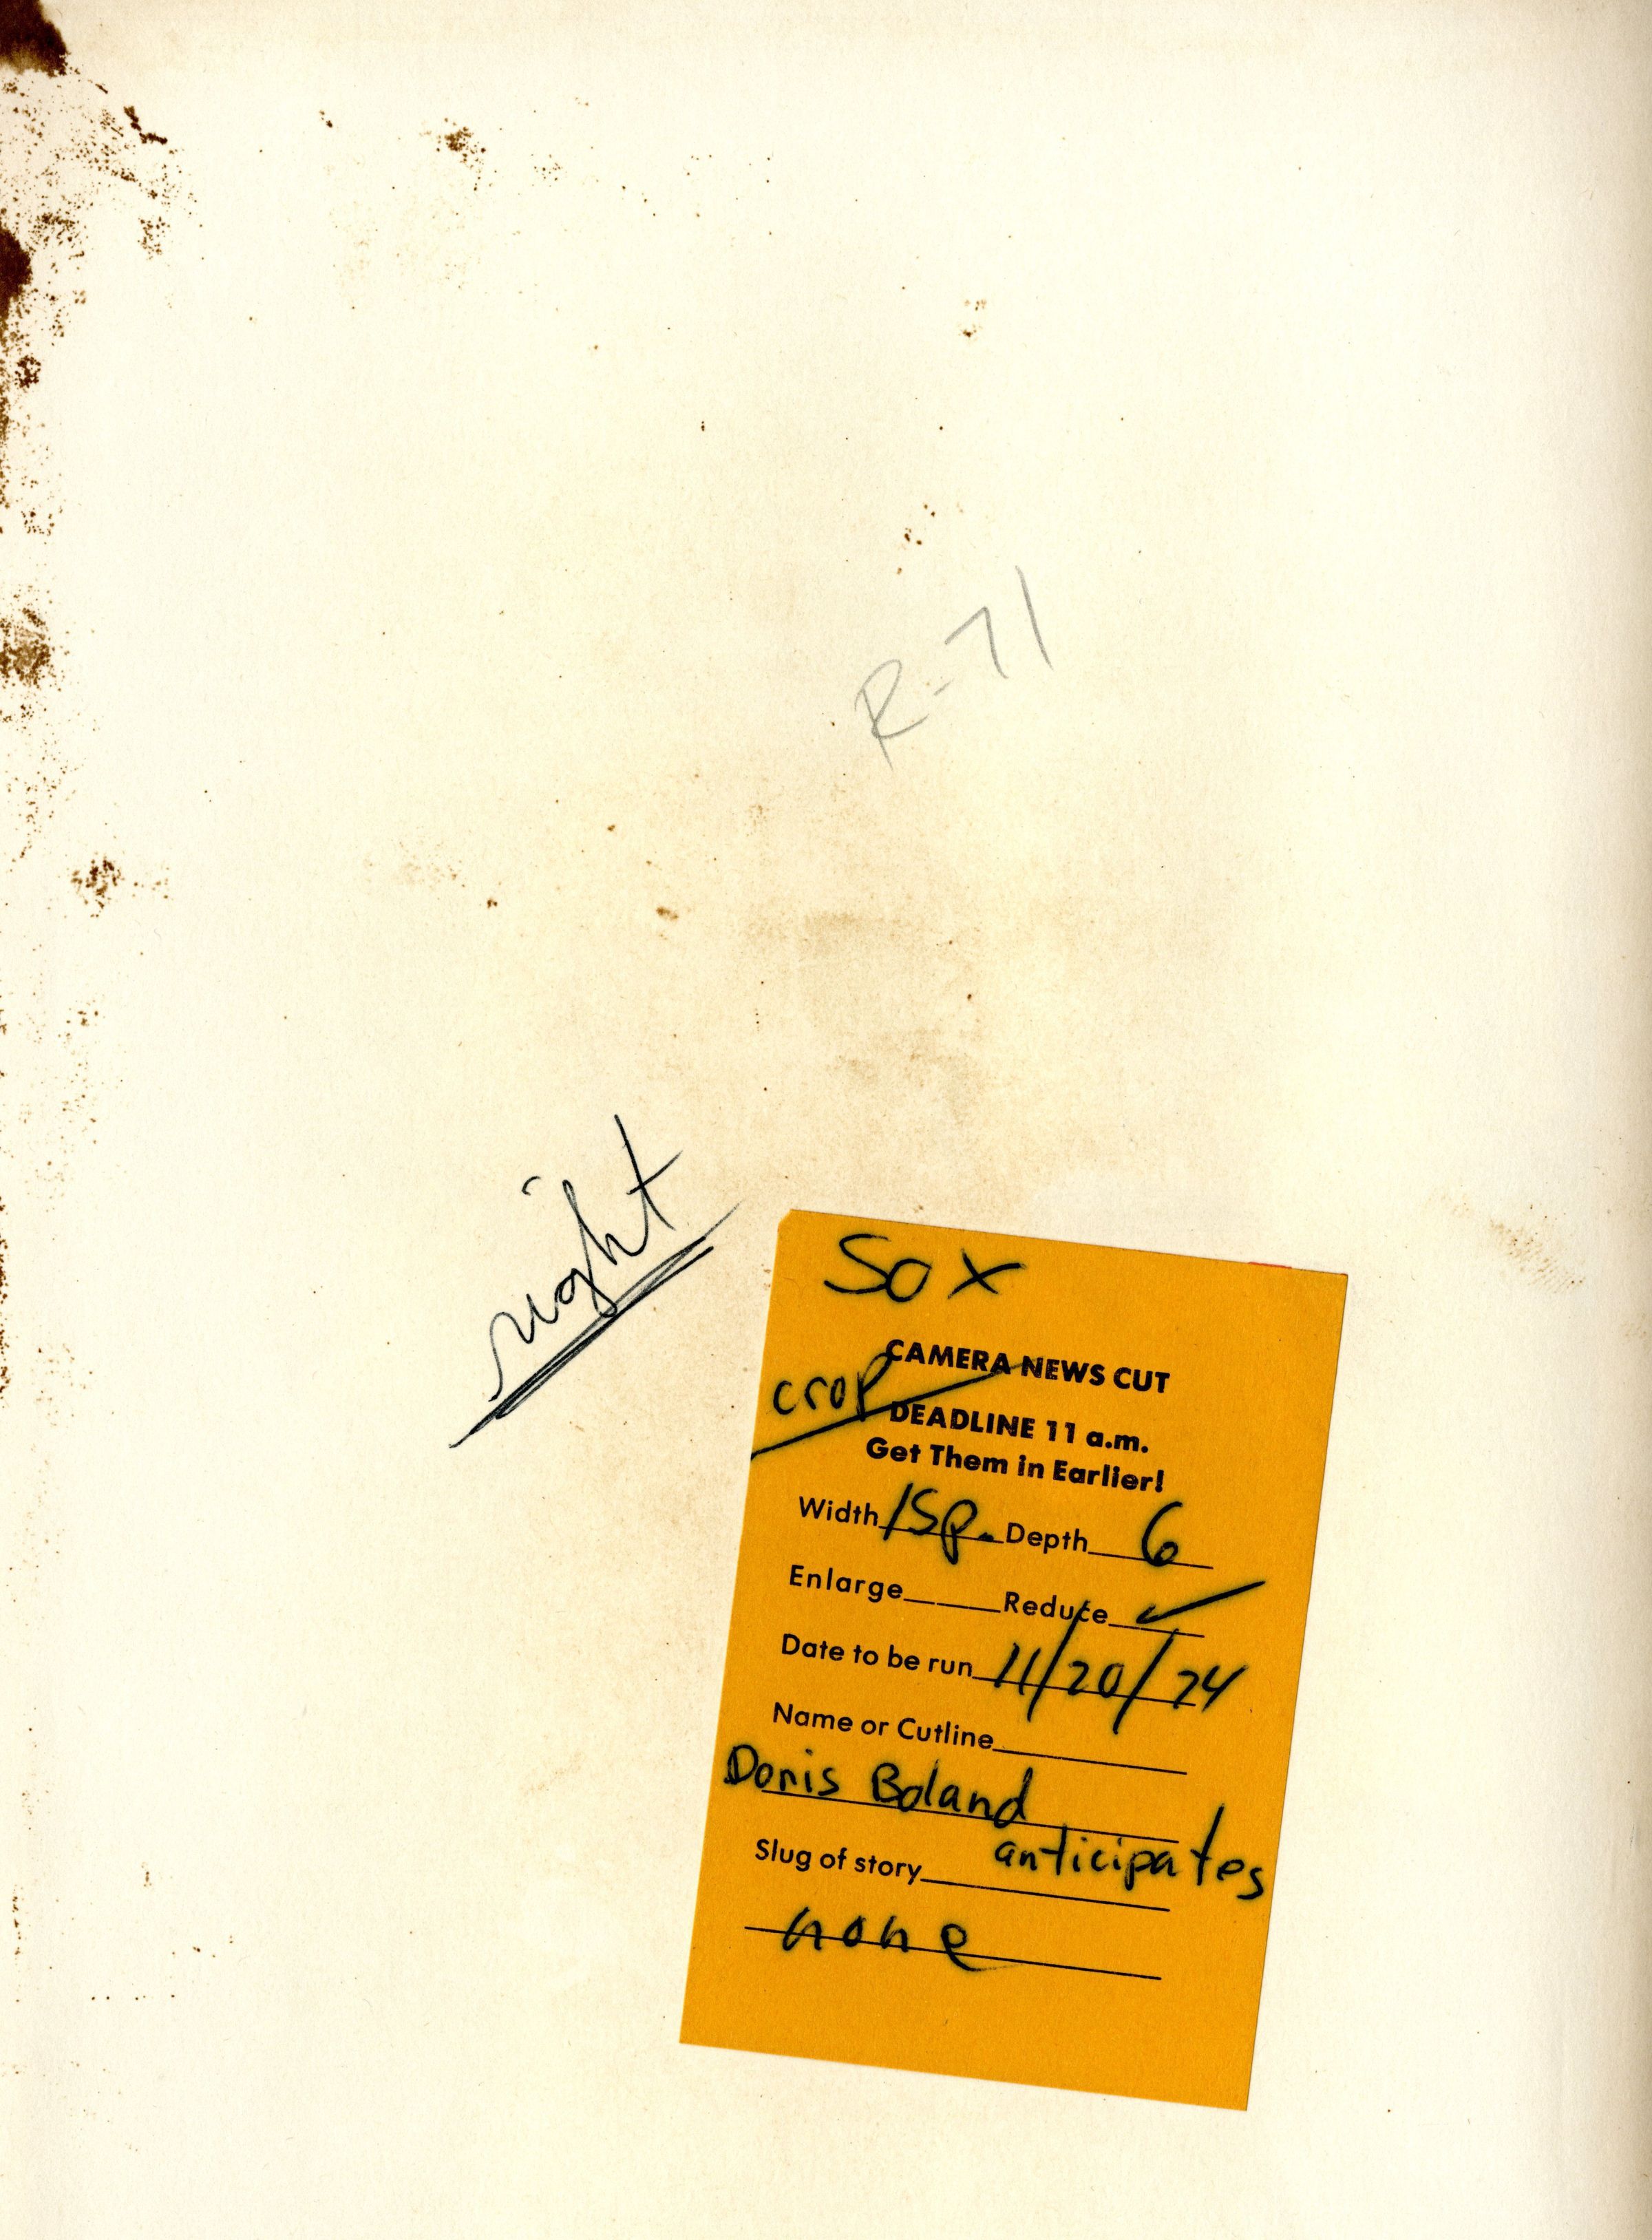 R-71
right
Sox
CAMERA NEWS CUT
crop
DEADLINE 11 a.m.
Get Them in Earlier!
Width 15p. Depth 6
Enlarge Reduce ✓
Date to be run 11/20/74
Name or Cutline
Doris Boland
anticipates
Slug of story
none